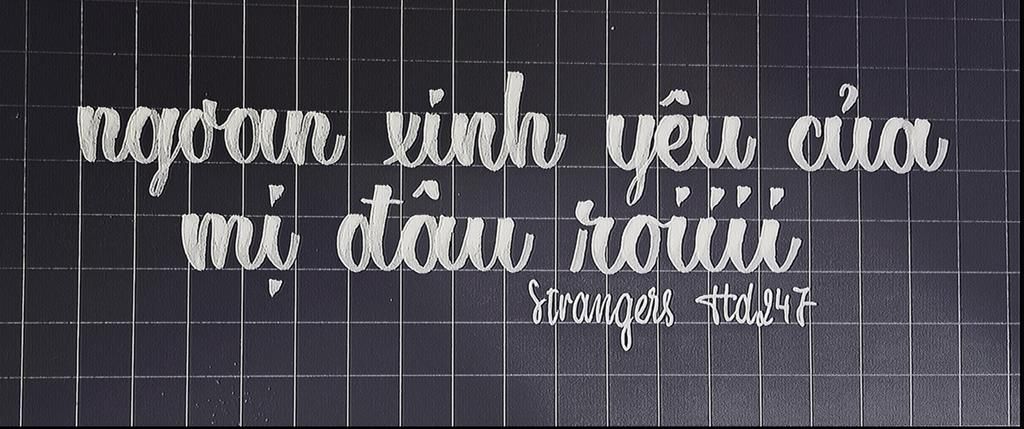 ngoan xinh yêu của
mị đâu roiiii
Strangers Htd247